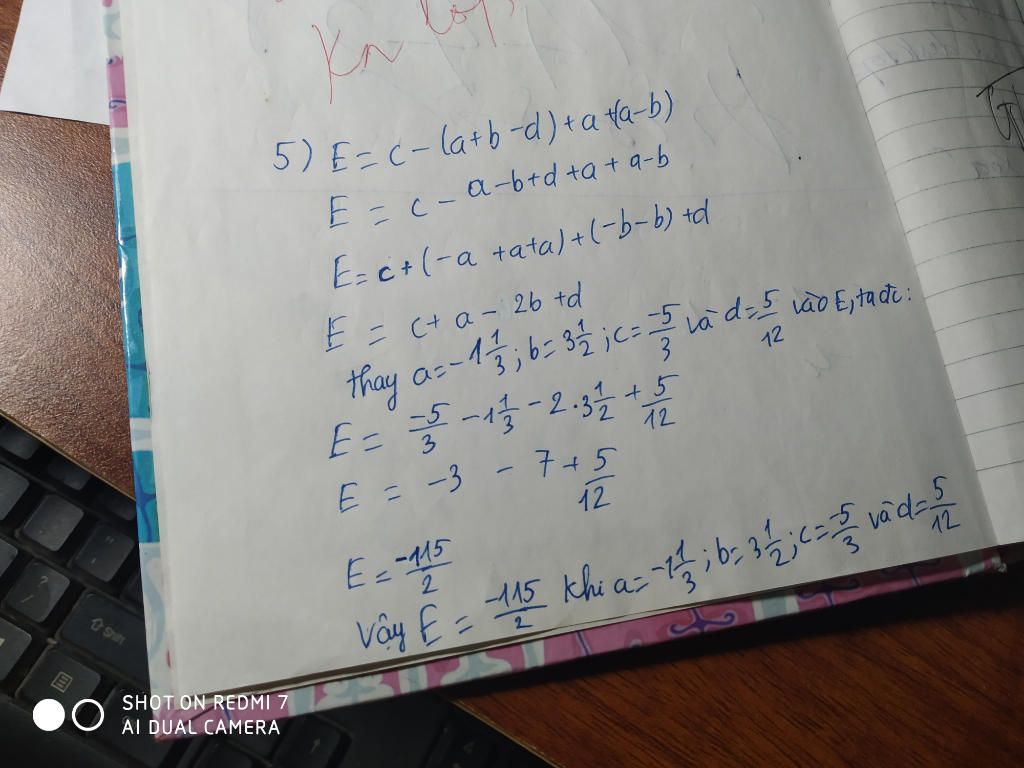 Kn lớp
5) E = c - (a+b-d) + a + (a-b)
E = c - a-b+d+a+a-b
E = c + (-a +a+a) + (-b-b) +d
E = c + a - 2b + d
thay a = -1 1/3 ; b = 3 1/2 ; c = -5/3 và d = 5/12 vào E, ta đc:
E = -5/3 - 1 1/3 - 2 . 3 1/2 + 5/12
E = -3 - 7 + 5/12
E = -115/2
Vậy E = -115/2 khi a = -1 1/3 ; b = 3 1/2 ; c = -5/3 và d = 5/12
Shift
SHOT ON REDMI 7
AI DUAL CAMERA